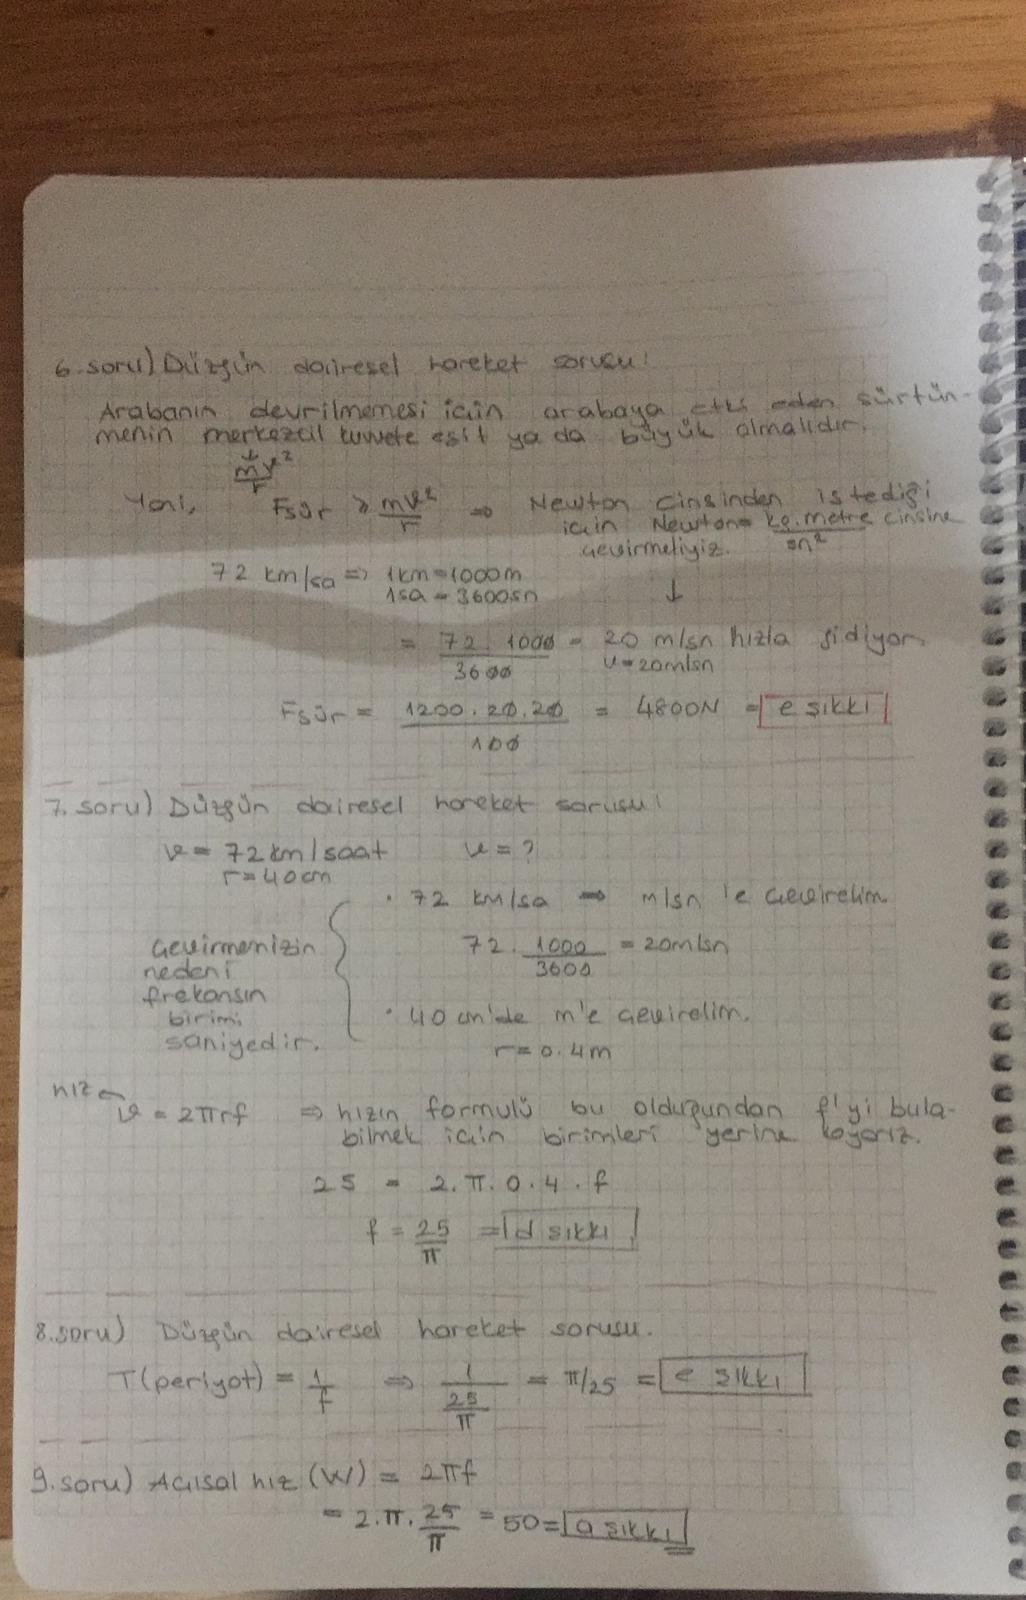 6. soru) Düzgün dairesel hareket sorusu!
Arabanın devrilmemesi için arabaya etki eden sürtün-
menin merkezcil kuvvete eşit ya da büyük olmalıdır.
↓
mv²/r
Yani, Fsür ≥ mv²/r ⇒ Newton cinsinden istediği
için Newton= kg.metre/sn² cinsine
çevirmeliyiz.
72 km/sa ⇒ 1km=1000m
1sa = 3600sn
↓
= 72.1000/3600 = 20 m/sn hızla gidiyor.
v=20m/sn
Fsür = 1200.20.20/100 = 4800N = e şıkkı
7. soru) Düzgün dairesel hareket sorusu!
v = 72km/saat v = ?
r=40cm
· 72 km/sa ⇒ m/sn 'e çevirelim
72. 1000/3600 = 20m/sn
Çevirmenizin
nedeni
frekansın
birimi
saniyedir.
· 40 cm'de m'e çevirelim.
r=0.4m
hız
v = 2πrf ⇒ hızın formülü bu olduğundan f'yi bula-
bilmek için birimleri yerine koyarız.
25 = 2.π.0.4.f
f = 25/π = d şıkkı
8.soru) Düzgün dairesel hareket sorusu.
T(periyot) = 1/f ⇒ 1/(25/π) = π/25 = e şıkkı
9.soru) Açısal hız (W) = 2πf
= 2.π.25/π = 50 = a şıkkı